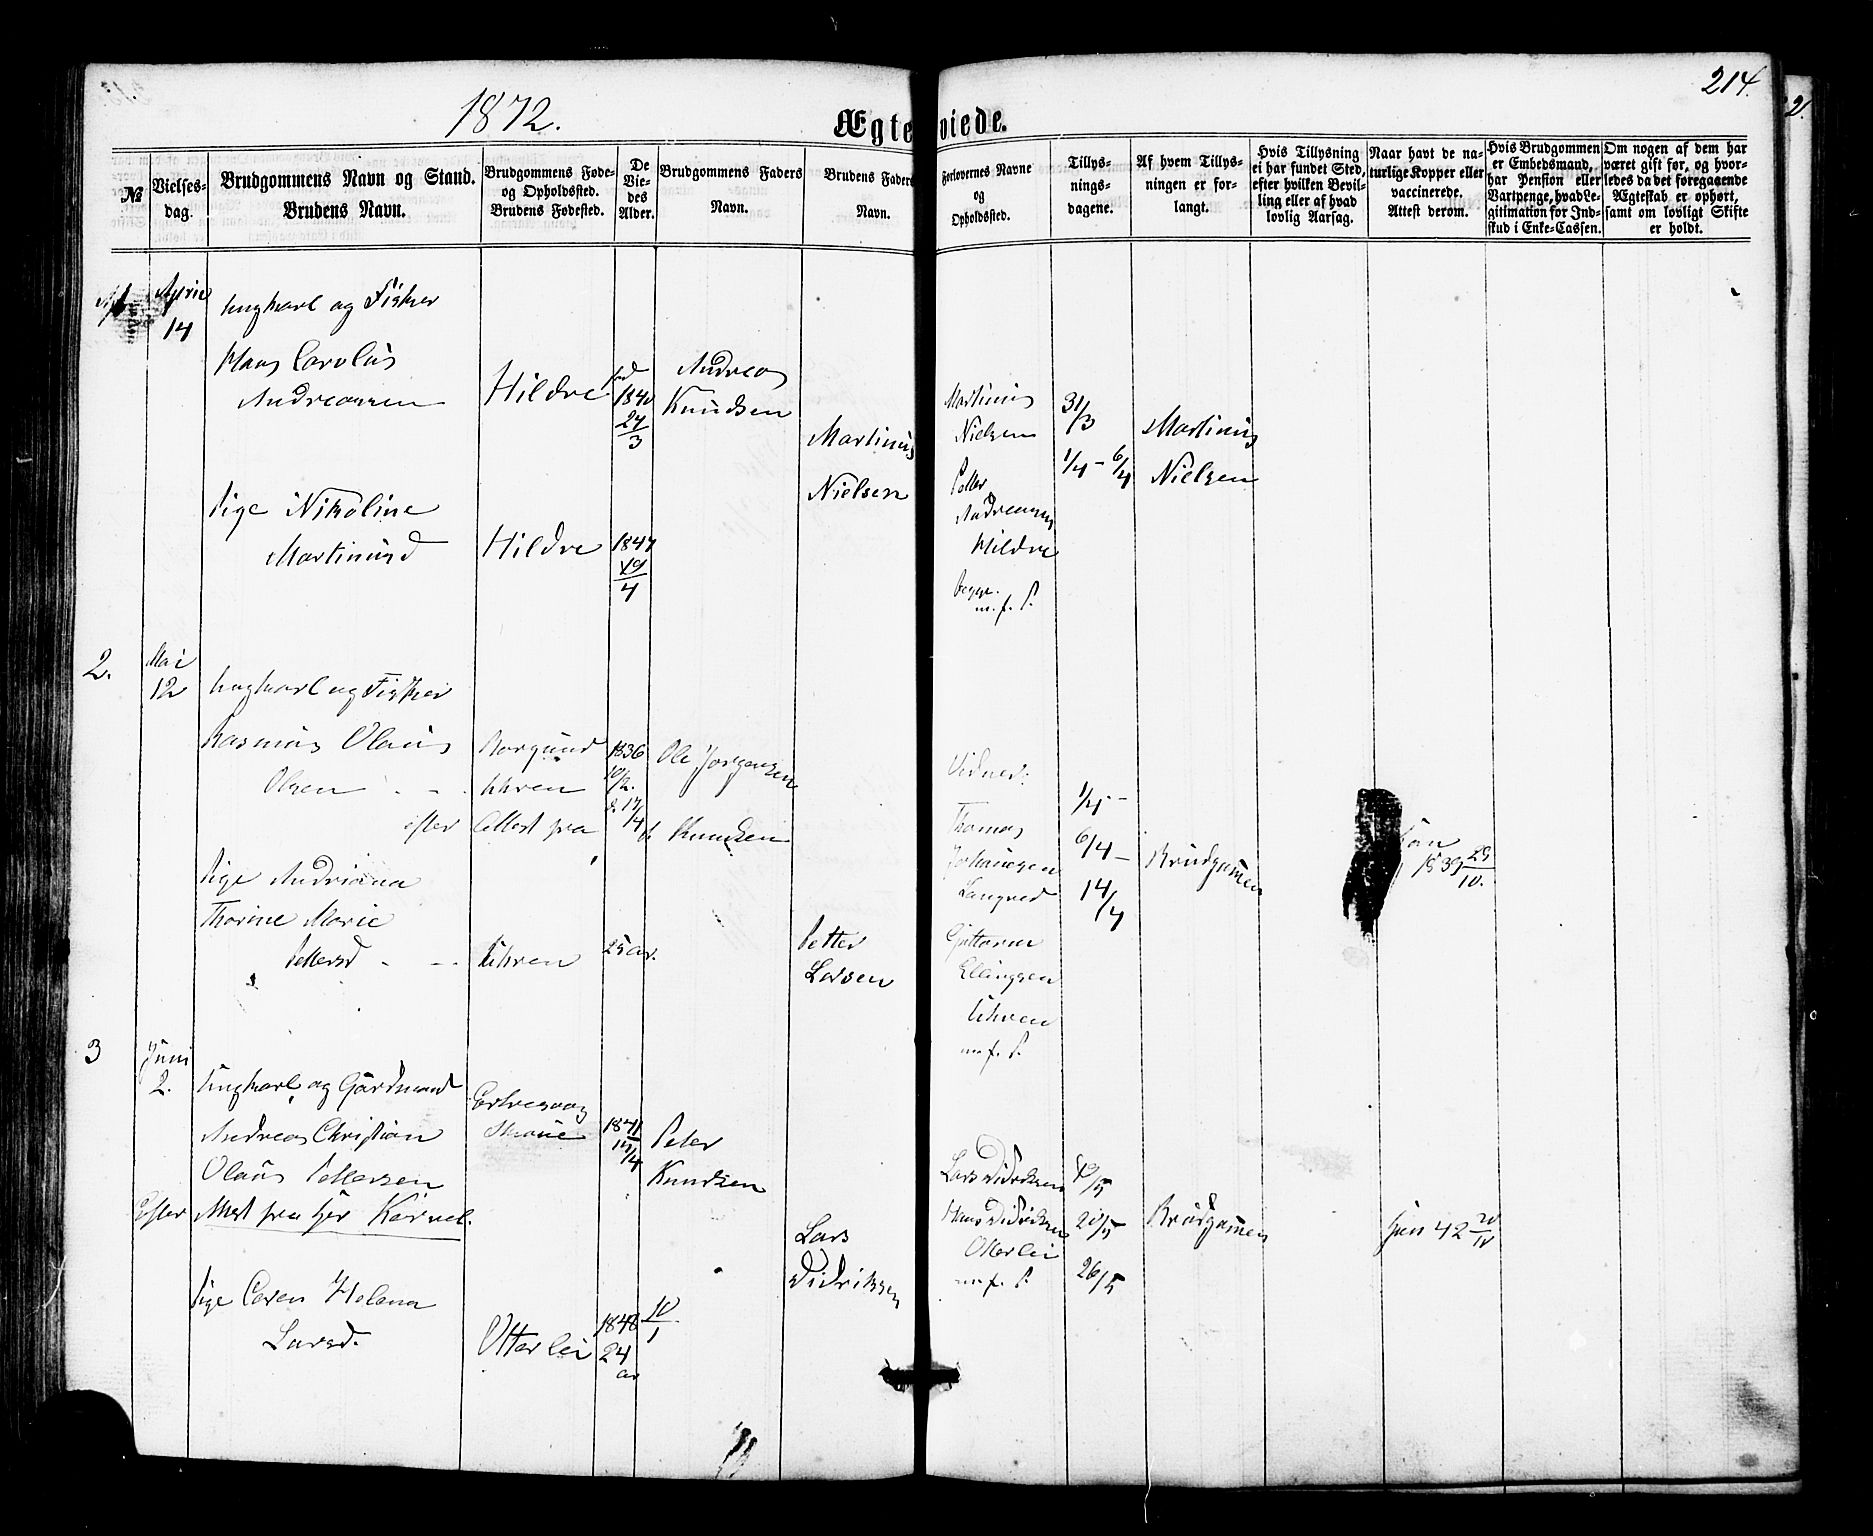 1872.
214.
Ægteviede.
№
Vielses-
dag.
Brudgommens Navn og Stand.
Brudens Navn.
Brudgommens Føde-
og Opholdssted.
Brudens Fødested.
De
Vie-
des
Alder.
Brudgommens Faders
Navn.
Brudens Faders
Navn.
Forlovernes Navne
og
Opholdssted.
Tillys-
nings-
dagene.
Af hvem Tillys-
ningen er for-
langt.
Hvis Tillysning
ei har fundet Sted,
efter hvilken Bevil-
ling eller af hvad
lovlig Aarsag.
Naar havt de na-
turlige Kopper eller
vaccinerede.
Attest derom.
Hvis Brudgommen
er Embedsmand,
har Pension eller
Vartpenge, hvad Le-
gitimation for Ind-
skud i Enke-Cassen.
Om nogen af dem har
været gift før, og hvor-
ledes da det foregaaende
Ægteskab er ophørt,
samt om lovligt Skifte
er holdt.
April
14
Ungkarl og Fisker
Hans Carolus
Andreassen
Hildre
1840
24/3
Andreas
Knudsen
Pige Nikoline
Martinusd
Hildre
1847
19/4
Martinus
Nielsen
Martinus
Nielsen
Petter
Andreassen
Hildre
begge
m. f. P.
31/3
1/4 - 6/4
Martinus
Nielsen
2.
Mai
12
Ungkarl og Fisker
Rasmus Olaus
Olsen
efter
Borgund
Uhren
Attest fra
1836
10/2.
17/4
Ole Jørgensen
Knudsen
Pige Andriana
Thorine Marie
Pettersd
Uhren
25 ar.
Petter
Larsen
Vidner:
Thomas
Johannesen
Langved
Guttorm
Ellingsen
Uhren
m. f. P.
1/4 -
6/4 -
14/4
Brudgumen
1839 29/10.
3
Juni
2.
Ungkarl og Gårdmand
Andreas Christian
Olaus Pettersen
Efter Attest fra
1841
17/4
Peter
Knudsen
Pige Caren Helena
Larsd.
Otterlei
1848 10/1
24
ar
Lars
Didriksen
Lars Didriksen
Hans Didriksen
Otterlei
m. f. P.
20/5
26/5
Brudgumen
42